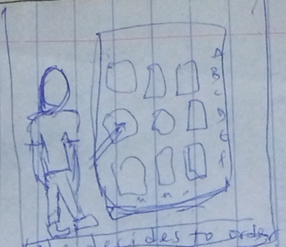 A
B
C
D
E
F
decides to order